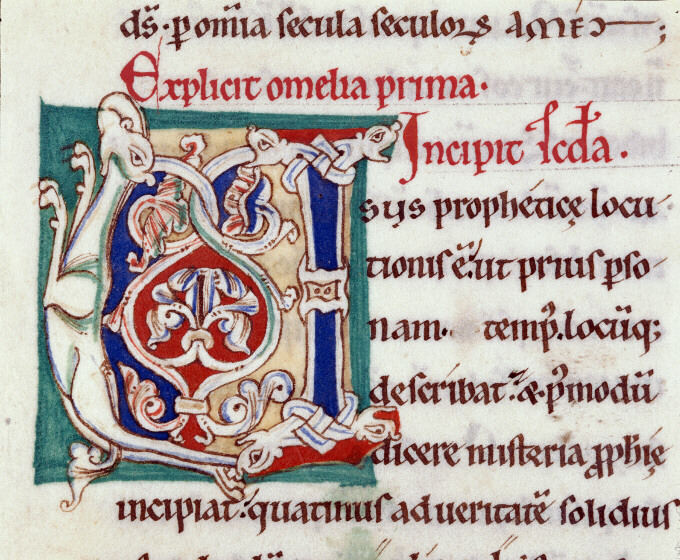 ds̄. p om̄ia secula seculoꝝ AMEN;
Explicit omelia prima.
Incipit scd̄a.
Usus propheticę locu
tionis ē. ut prius pso
nam. temp̄. locūq;
describat. & p̄modū
dicere misteria ꝓphię
incipiat. quatinus ad ueritatē solidius